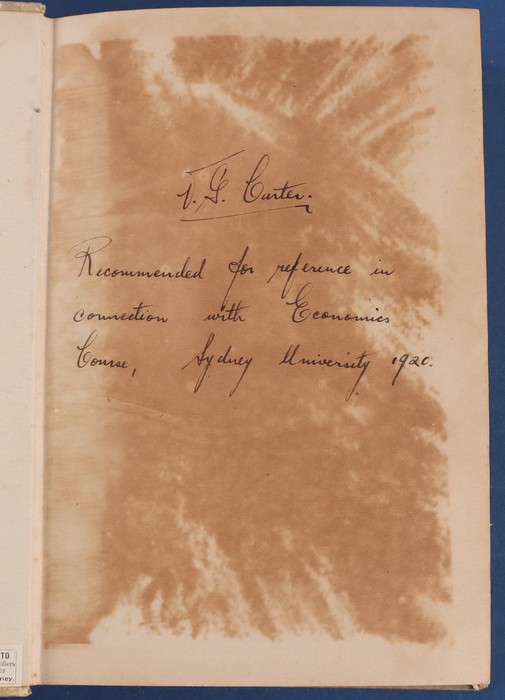 V. G. Carter.
Recommended for reference in
connection with Economics
Course, Sydney University 1920.
TD
llers
ey
ney.